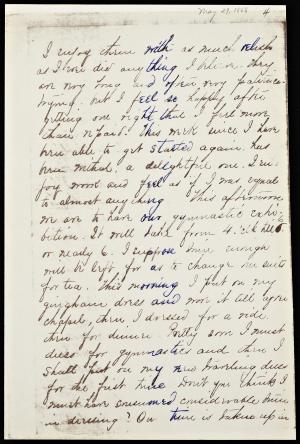 May 29, 1886 4
I enjoy them with as much relish
as I ever did anything I believe. They
are very long and often very patience
trying. but I feel so happy after
getting one right that I feel more
than repaid. This week since I have
been able to get started again. has
been a delightful one. I en-
joy work and feel as if I was equal
to almost anything This afternoon
we are to have our gymnastic exhi-
bition. It will last from 4. till 6
or nearly 6. I suppose time enough
will be left for us to change our suits
for tea. This morning I put on my
gingham dress and wore it till after
chapel, then I dressed for a ride.
then for dinner. Pretty soon I must
dress for gymnastics and then I
shall put on my new traveling dress
for the first time Don't you think I
must have consumed considerable time
in dressing? Our time is taken up in